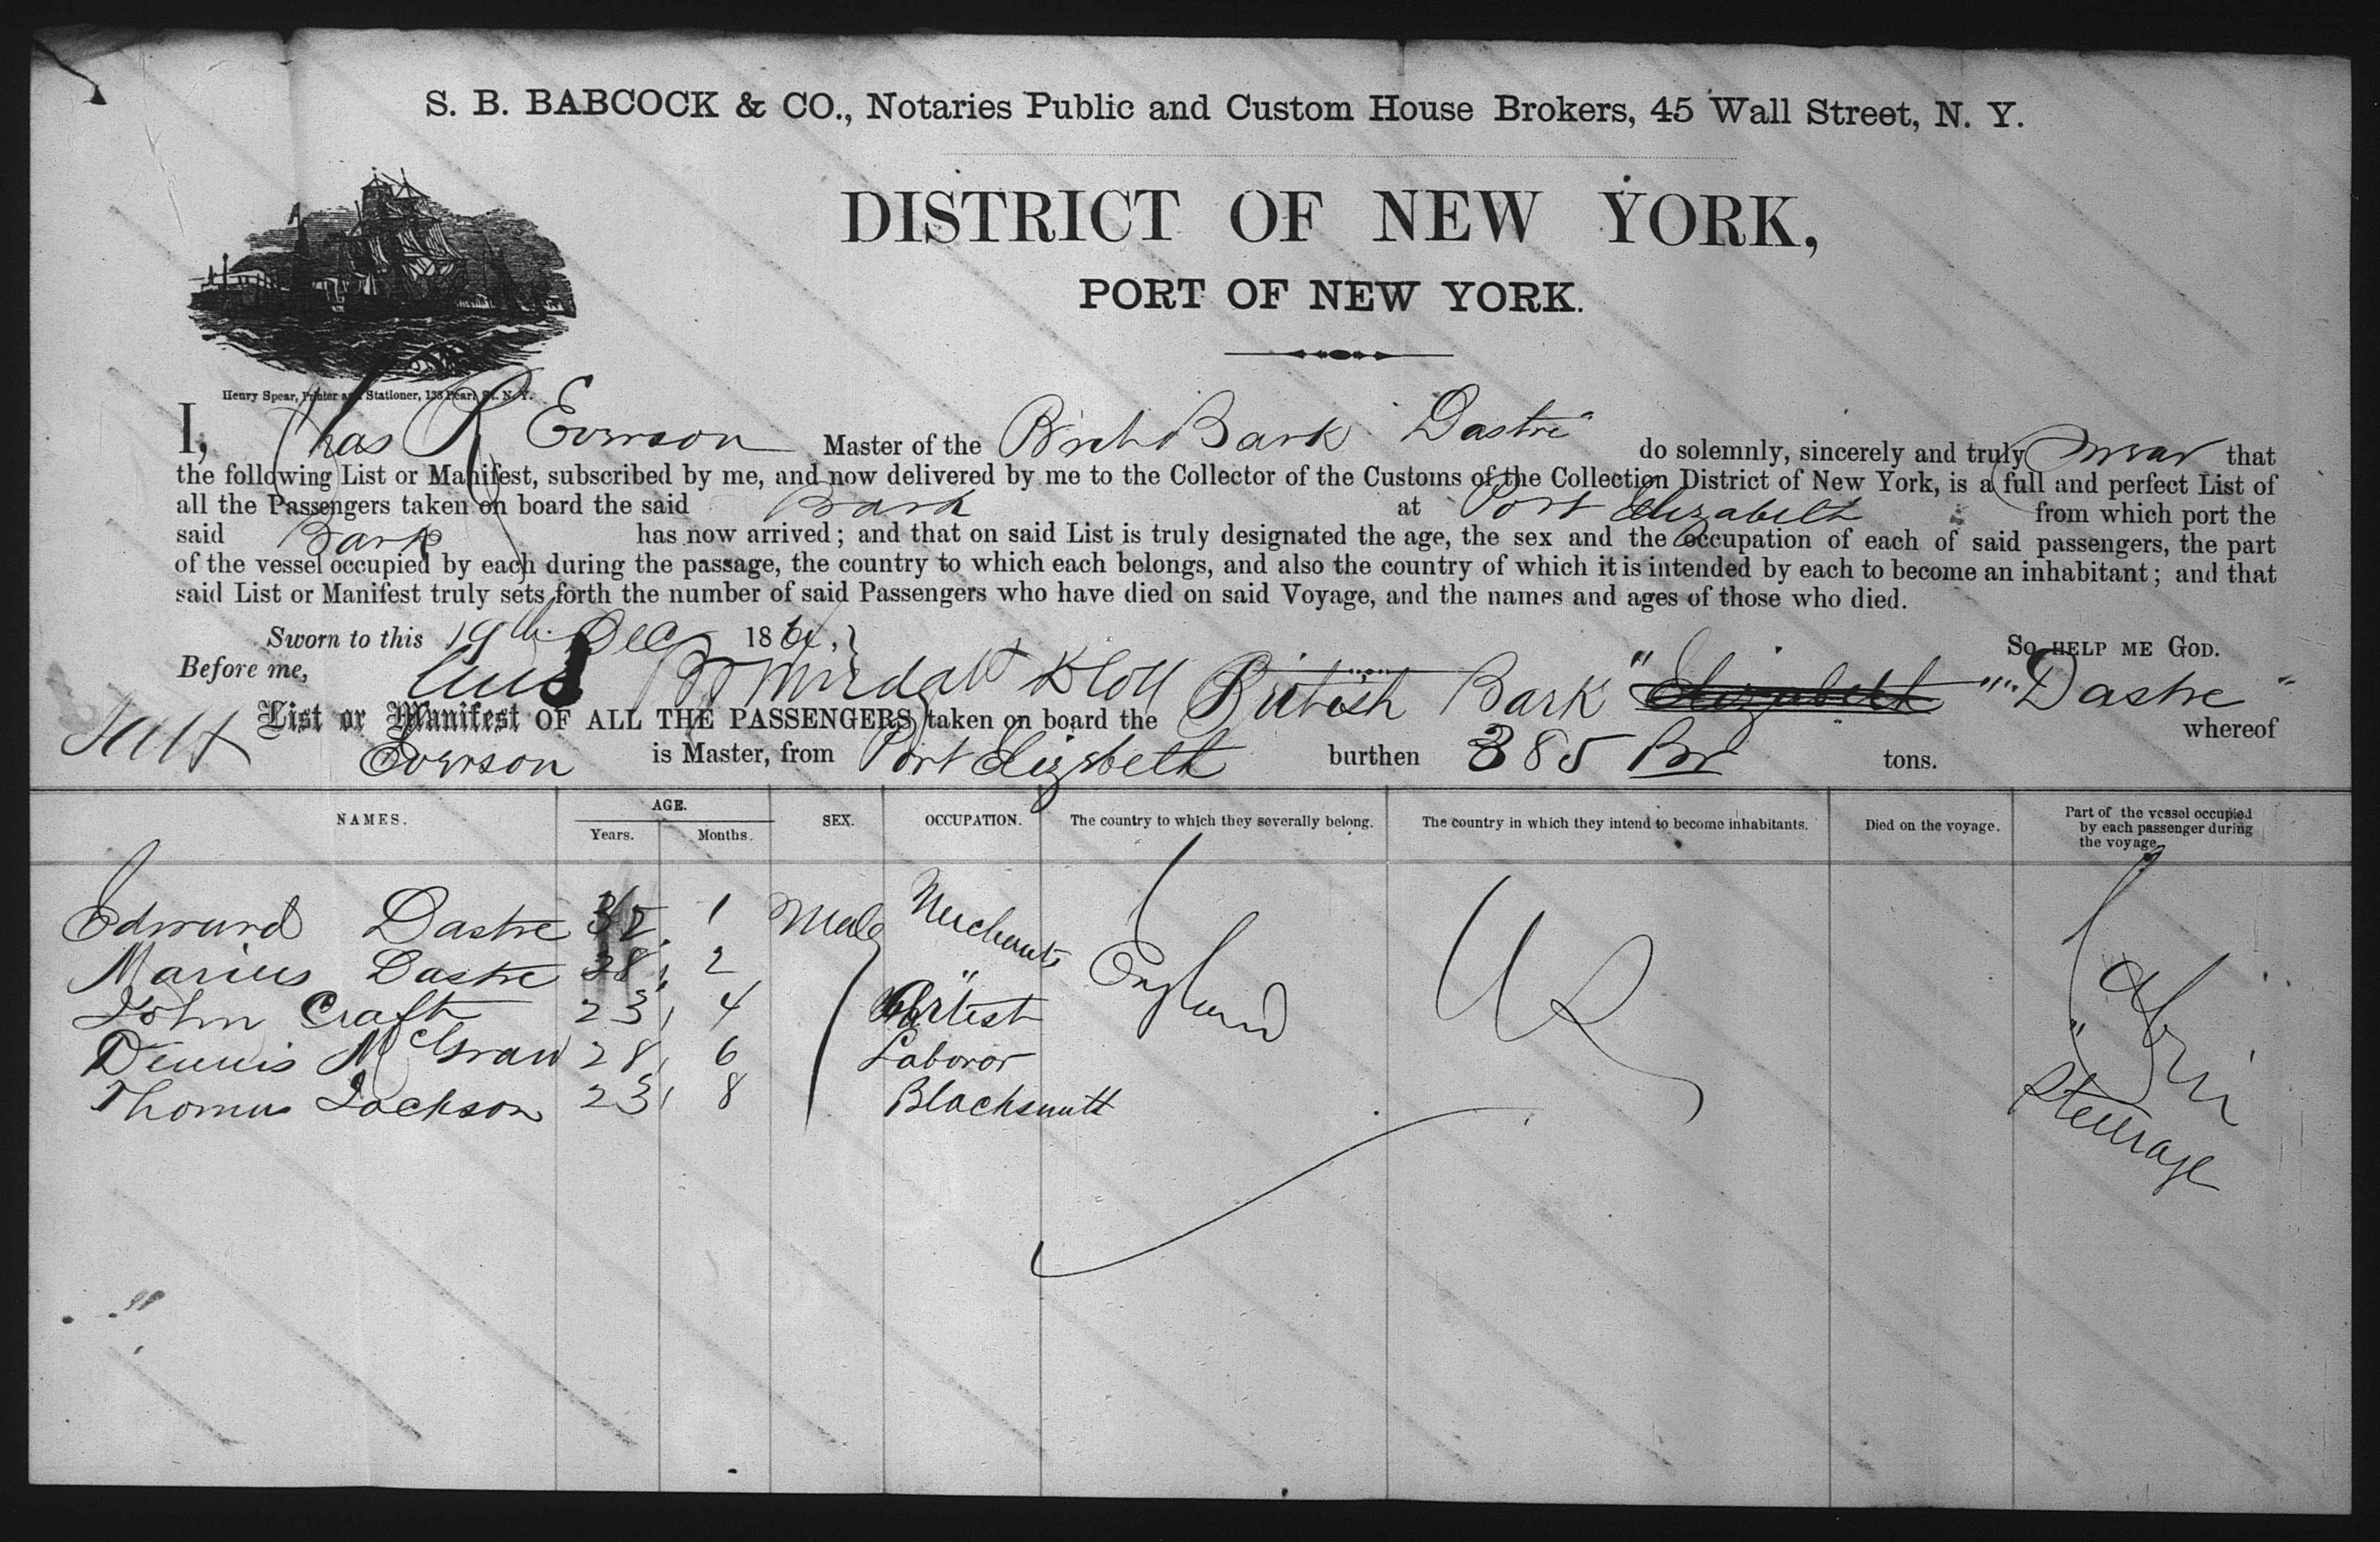 S. B. BABCOCK & CO., Notaries Public and Custom House Brokers, 45 Wall Street, N. Y.
DISTRICT OF NEW YORK,
PORT OF NEW YORK.
Henry Spear, Printer and Stationer, 133 Pearl St. N. Y.
I, Chas R Everson Master of the Britsh Bark Dastre do solemnly, sincerely and truly swear that
the following List or Manifest, subscribed by me, and now delivered by me to the Collector of the Customs of the Collection District of New York, is a full and perfect List of
all the Passengers taken on board the said Bark at Port Elizabeth from which port the
said Bark has now arrived; and that on said List is truly designated the age, the sex and the occupation of each of said passengers, the part
of the vessel occupied by each during the passage, the country to which each belongs, and also the country of which it is intended by each to become an inhabitant; and that
said List or Manifest truly sets forth the number of said Passengers who have died on said Voyage, and the names and ages of those who died.
Sworn to this 19th Dec 186
So HELP ME GOD.
Before me,
List or Manifest OF ALL THE PASSENGERS taken on board the British Bark "Elizabeth" "Dastre" whereof
Everson is Master, from Port Elizabeth burthen 385 Br tons.
NAMES. AGE. Years. Months. SEX. OCCUPATION. The country to which they severally belong. The country in which they intend to become inhabitants. Died on the voyage. Part of the vessel occupied by each passenger during the voyage.
Edward Dastre 1 Male Merchant England US Cabin
Marius Dastre 38 2 "
John Craft 23 4 Artist "
Dennis McGraw 28 6 Laboror Steerage
Thomas Jackson 23 8 Blacksmith